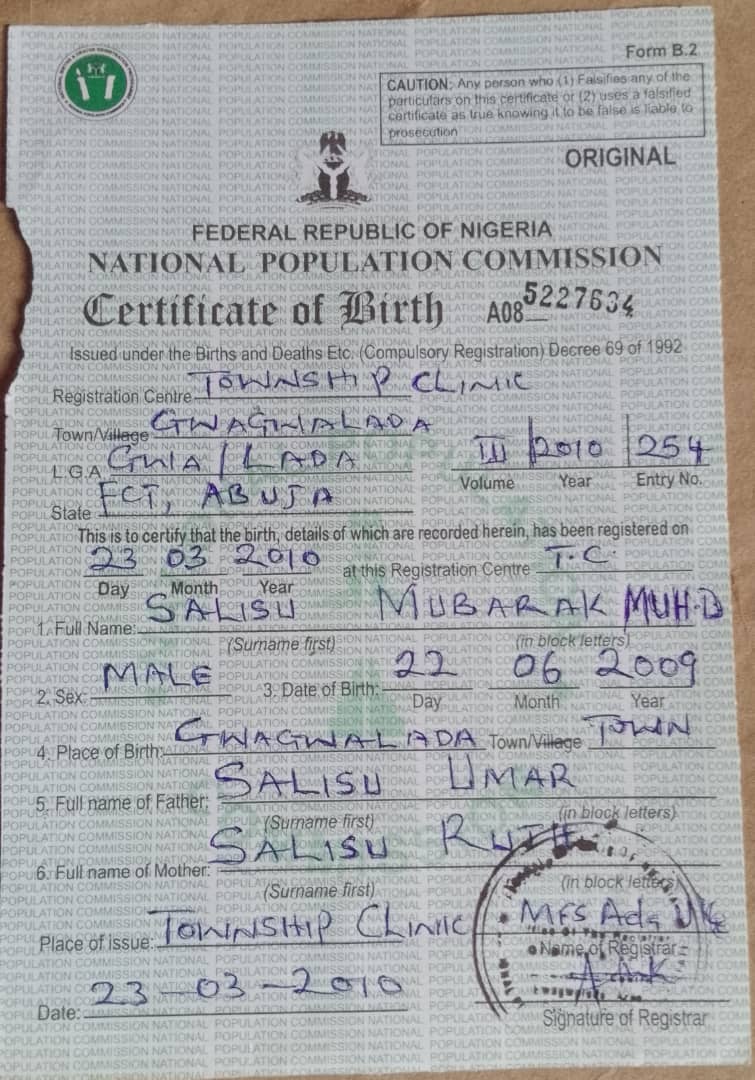 Form B.2
CAUTION: Any person who (1) Falsifies any of the
particulars on this certificate or (2) uses a falsified
certificate as true knowing it to be false is liable to
prosecution
ORIGINAL
FEDERAL REPUBLIC OF NIGERIA
NATIONAL POPULATION COMMISSION
Certificate of Birth A08 5227634
Issued under the Births and Deaths Etc. (Compulsory Registration) Decree 69 of 1992
Registration Centre TOWNSHIP CLINIC
Town/Village GWAGWALADA
L.G.A GWA/LADA III 2010 254
Volume Year Entry No.
State FCT, ABUJA
This is to certify that the birth, details of which are recorded herein, has been registered on
23 03 2010 at this Registration Centre T.C.
Day Month Year
1. Full Name: SALISU MUBARAK MUH.D
(Surname first) (in block letters)
2. Sex: MALE 3. Date of Birth: 22 06 2009
Day Month Year
4. Place of Birth: GWAGWALADA Town/Village TOWN
5. Full name of Father: SALISU UMAR
(Surname first) (in block letters)
6. Full name of Mother: SALISU RUTH
(Surname first) (in block letters)
Place of issue: TOWNSHIP CLINIC Mrs Ada
Name of Registrar
Date: 23-03-2010
Signature of Registrar